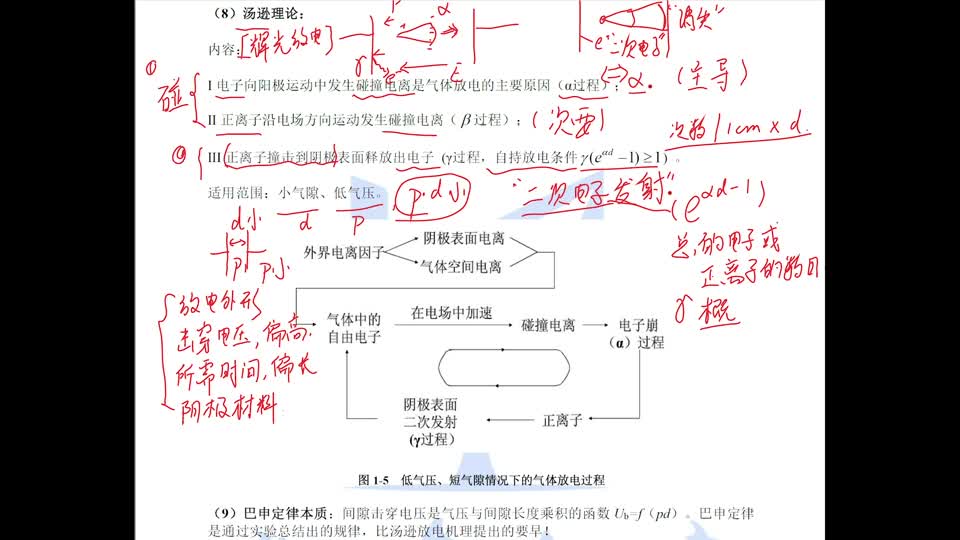 （8）汤逊理论：
内容：[辉光放电]
α
"消失"
e "二次电子"
γ
e
E
①
碰
I 电子向阳极运动中发生碰撞电离是气体放电的主要原因（α过程）；
⇔ α.（主导）
II 正离子沿电场方向运动发生碰撞电离（β过程）；（次要）
次数/1cm × d.
III 正离子撞击到阴极表面释放出电子 (γ过程，自持放电条件 γ(e^{αd}−1)≥1) 。
适用范围：小气隙、低气压。
p·d 小
"二次电子发射".
(e^{αd-1})
d小
d
P
P
P小
总的电子或
正离子的数目
γ 概
外界电离因子
阴极表面电离
气体空间电离
放电外形
击穿电压，偏高.
所需时间，偏长
阴极材料
气体中的
自由电子
在电场中加速
碰撞电离
电子崩
（α）过程
阴极表面
二次发射
(γ过程)
正离子
图 1-5 低气压、短气隙情况下的气体放电过程
（9）巴申定律本质：间隙击穿电压是气压与间隙长度乘积的函数 U_b=f（pd）。巴申定律
是通过实验总结出的规律，比汤逊放电机理提出的要早！